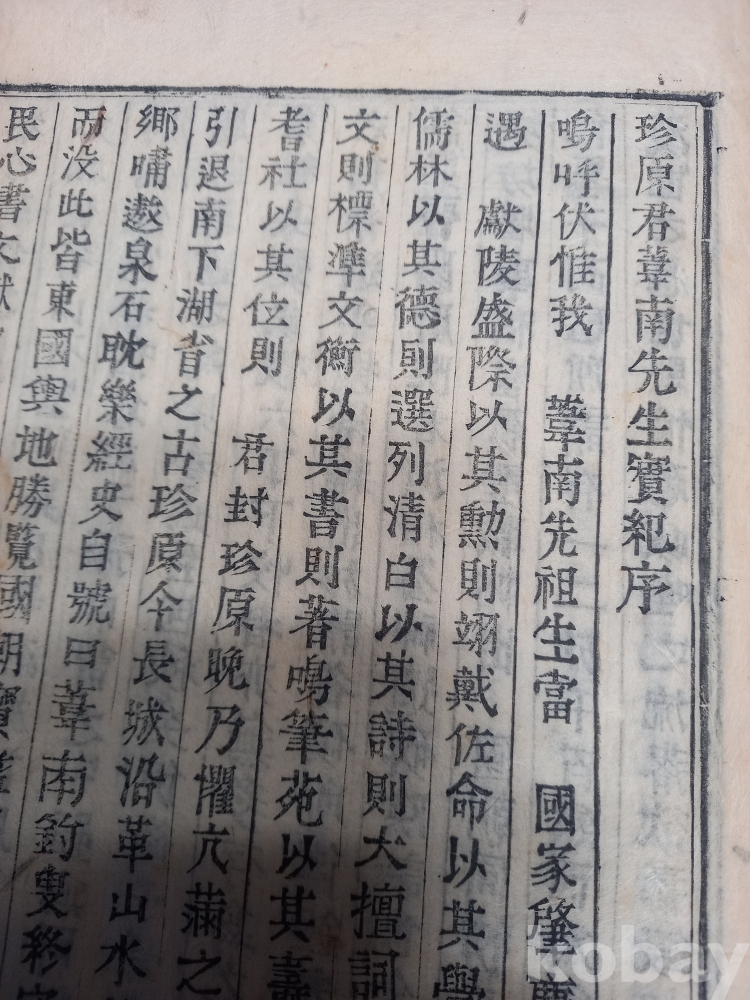 珍原君葦南先生實紀序
嗚呼伏惟我 葦南先祖生當 國家肇
遇 獻陵盛際以其勳則翊戴佐命以其學
儒林以其德則選列清白以其詩則大擅詞
文則標準文衡以其書則著鳴筆苑以其壽
耆社以其位則 君封珍原晚乃懼亢滿之
引退南下湖省之古珍原今長城沿革山水
鄉嘯遨泉石耽樂經史自號曰葦南釣叟終
而没此皆東國輿地勝覽國朝寶
民心書文獻
kobay